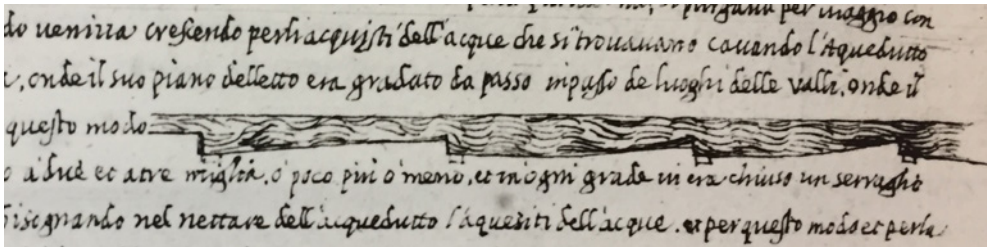 per maggio con
do ueniua crescendo perli acquisti dell'acque che si trouauano cauando l'Aquedutto
onde il suo piano delletto era gradato da passo in passo de luoghi delle valli, onde il
questo modo
a due et a tre miglia, o poco più o meno, et in ogni grade ui era chiuso un serraglio
bisognando nel nettare dell'acquedutto l'aquesiti dell'acque. et per questo modo et perla